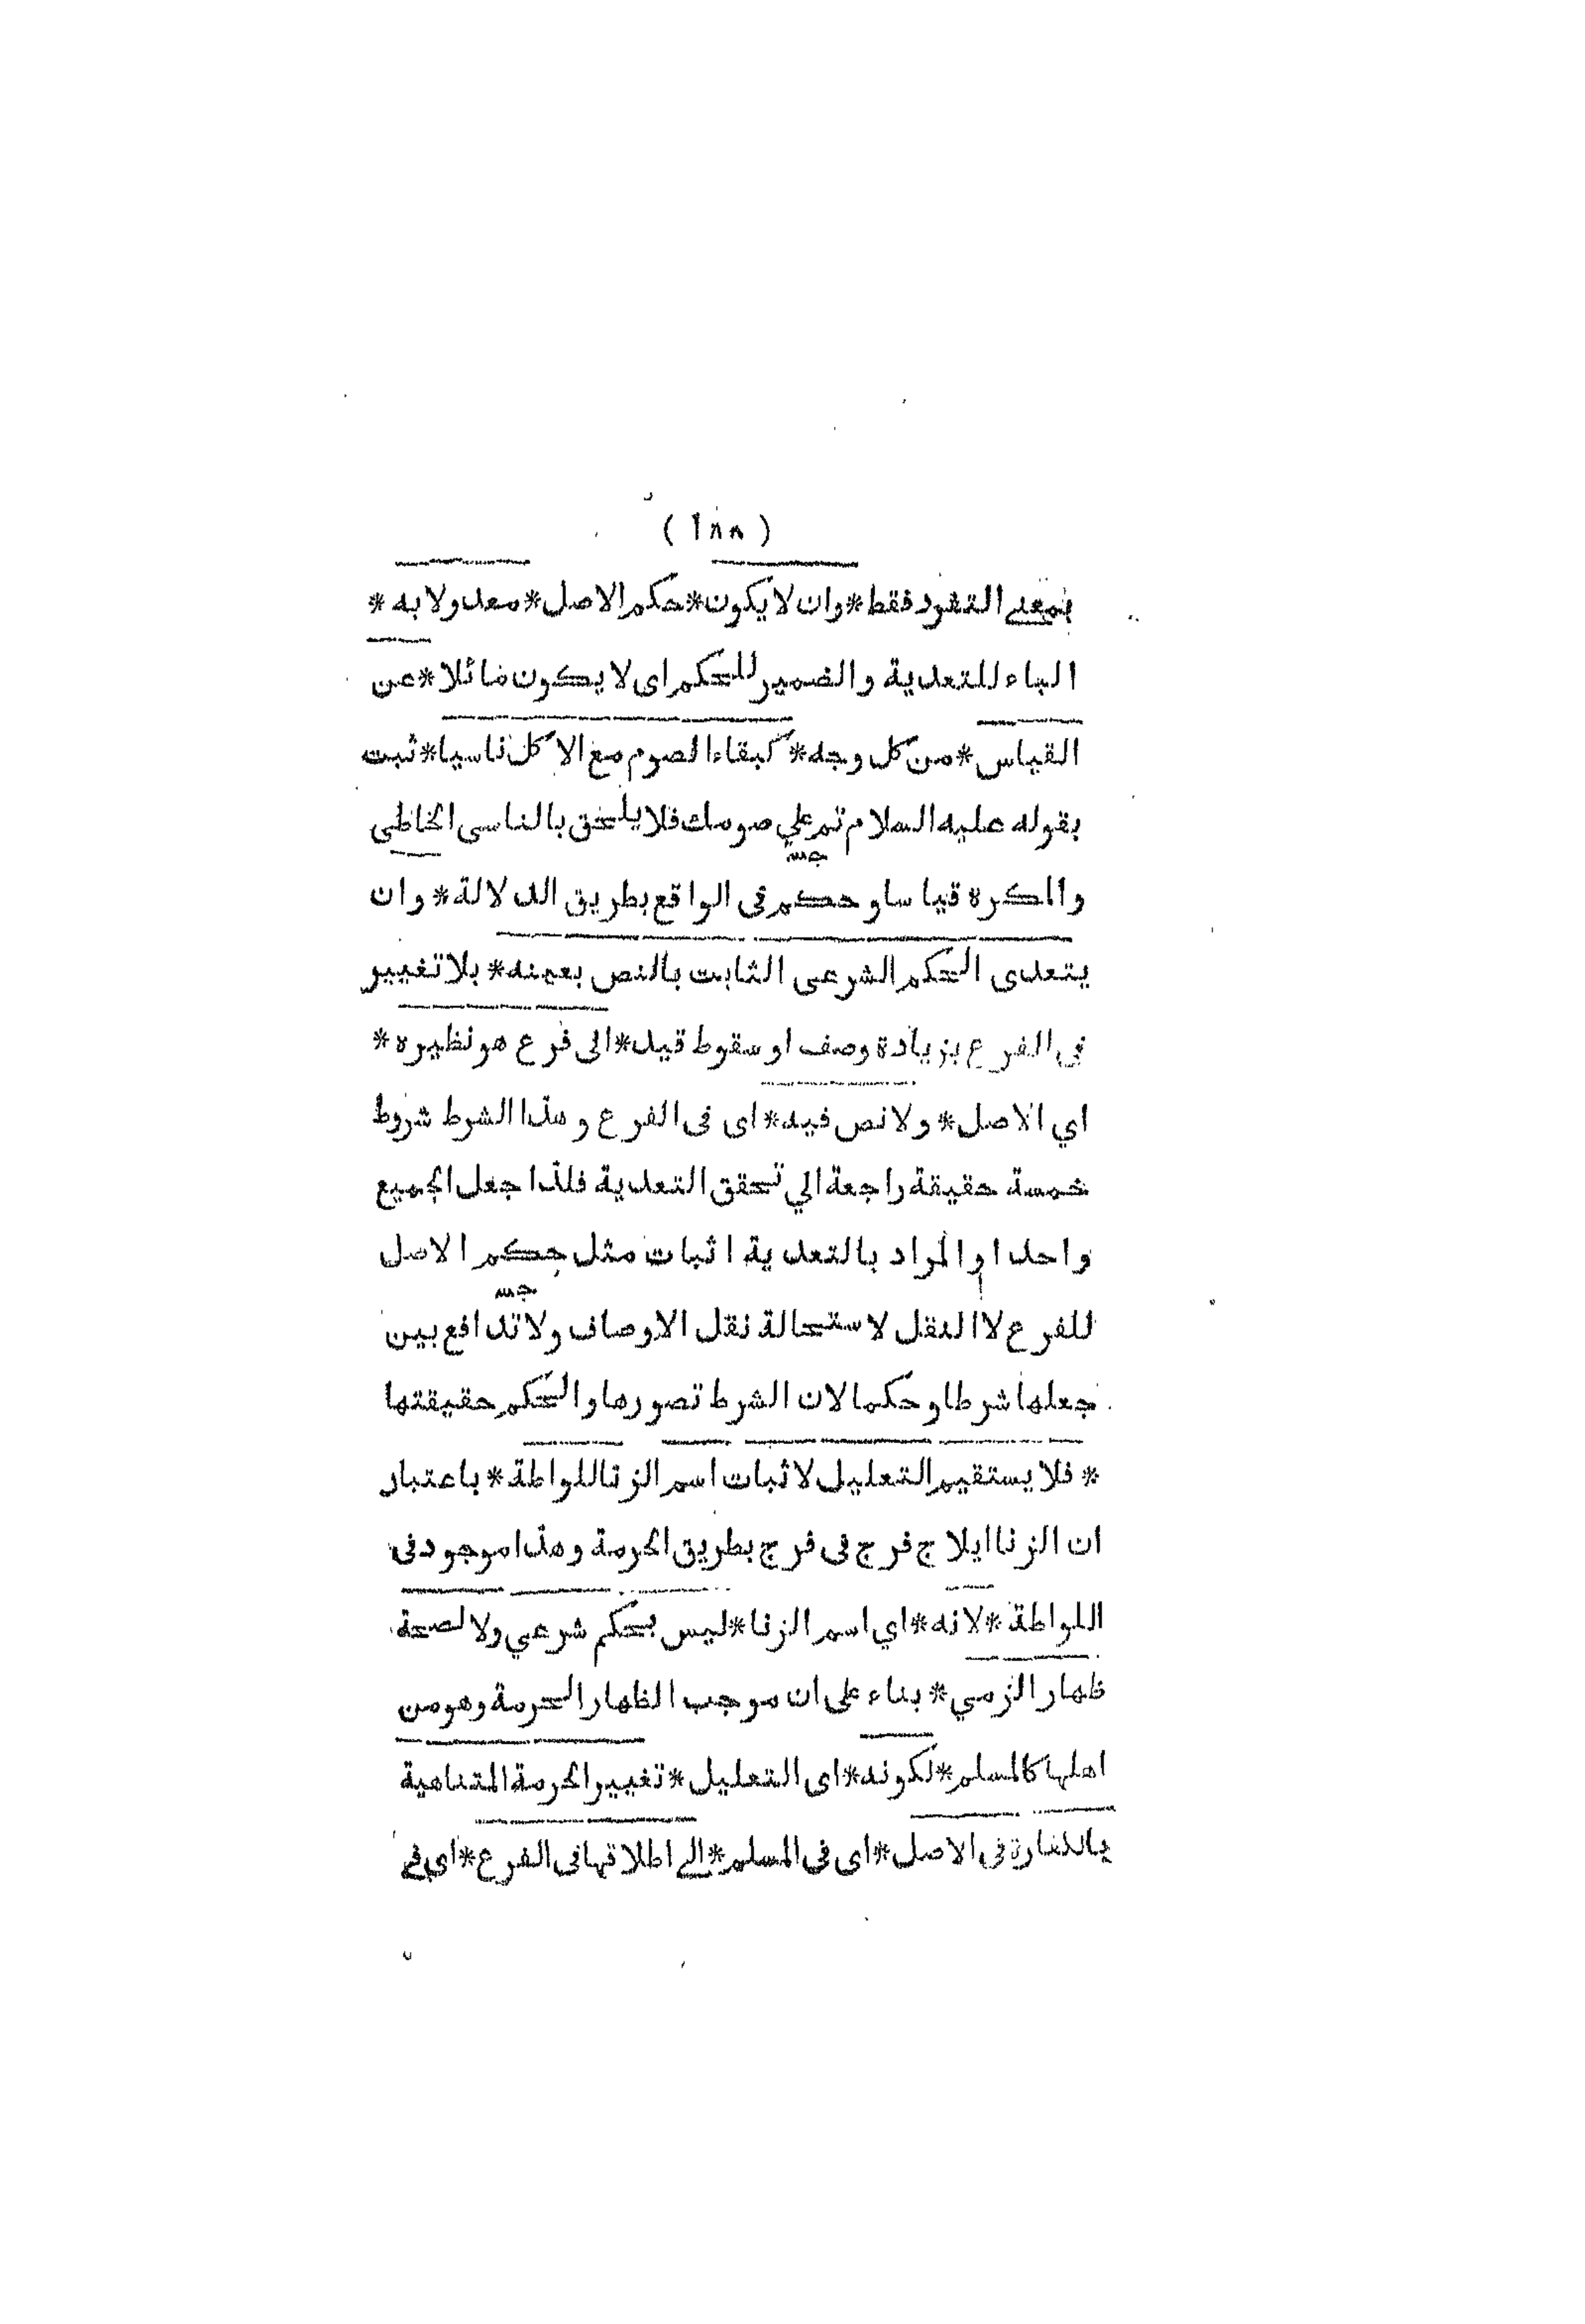 ( ١٨٨ )
بمعنى التفرد فقط * وان لا يكون * حكم الاصل * معدولا به *
الباء للتعدية والضمير للحكم اى لا يكون مائلا * عن
القياس * من كل وجه * كبقاء الصوم مع الاكل ناسيا * ثبت
بقوله عليه السلام تم علي صومك فلا يلحق بالناسى الخاطى
والمكره قياسا وحكم فى الواقع بطريق الدلالة * وان
يتعدى الحكم الشرعى الثابت بالنص بعينه * بلا تغيير
فى الفرع بزيادة وصف او سقوط قيد * الى فرع هو نظيره *
اي الاصل * ولا نص فيه * اى فى الفرع وهذا الشرط شروط
خمسة حقيقة راجعة الي تحقق التعدية فلذا جعل الجميع
واحدا والمراد بالتعدية اثبات مثل حكم الاصل
للفرع لا النقل لاستحالة نقل الاوصاف ولا تدافع بين
جعلها شرطا وحكما لان الشرط تصورها والحكم حقيقتها
* فلا يستقيم التعليل لاثبات اسم الزنا للواطة * باعتبار
ان الزنا ايلاج فرج فى فرج بطريق الحرمة وهذا موجود فى
اللواطة * لانه * اي اسم الزنا * ليس بحكم شرعي ولا لصحة
ظهار الزمي * بناء على ان موجب الظهار الحرمة وهو من
اهلها كالمسلم * لكونه * اى التعليل * تغيير الحرمة المتناهية
بالكفارة فى الاصل * اى فى المسلم * الے اطلاقها فى الفرع * اى فے